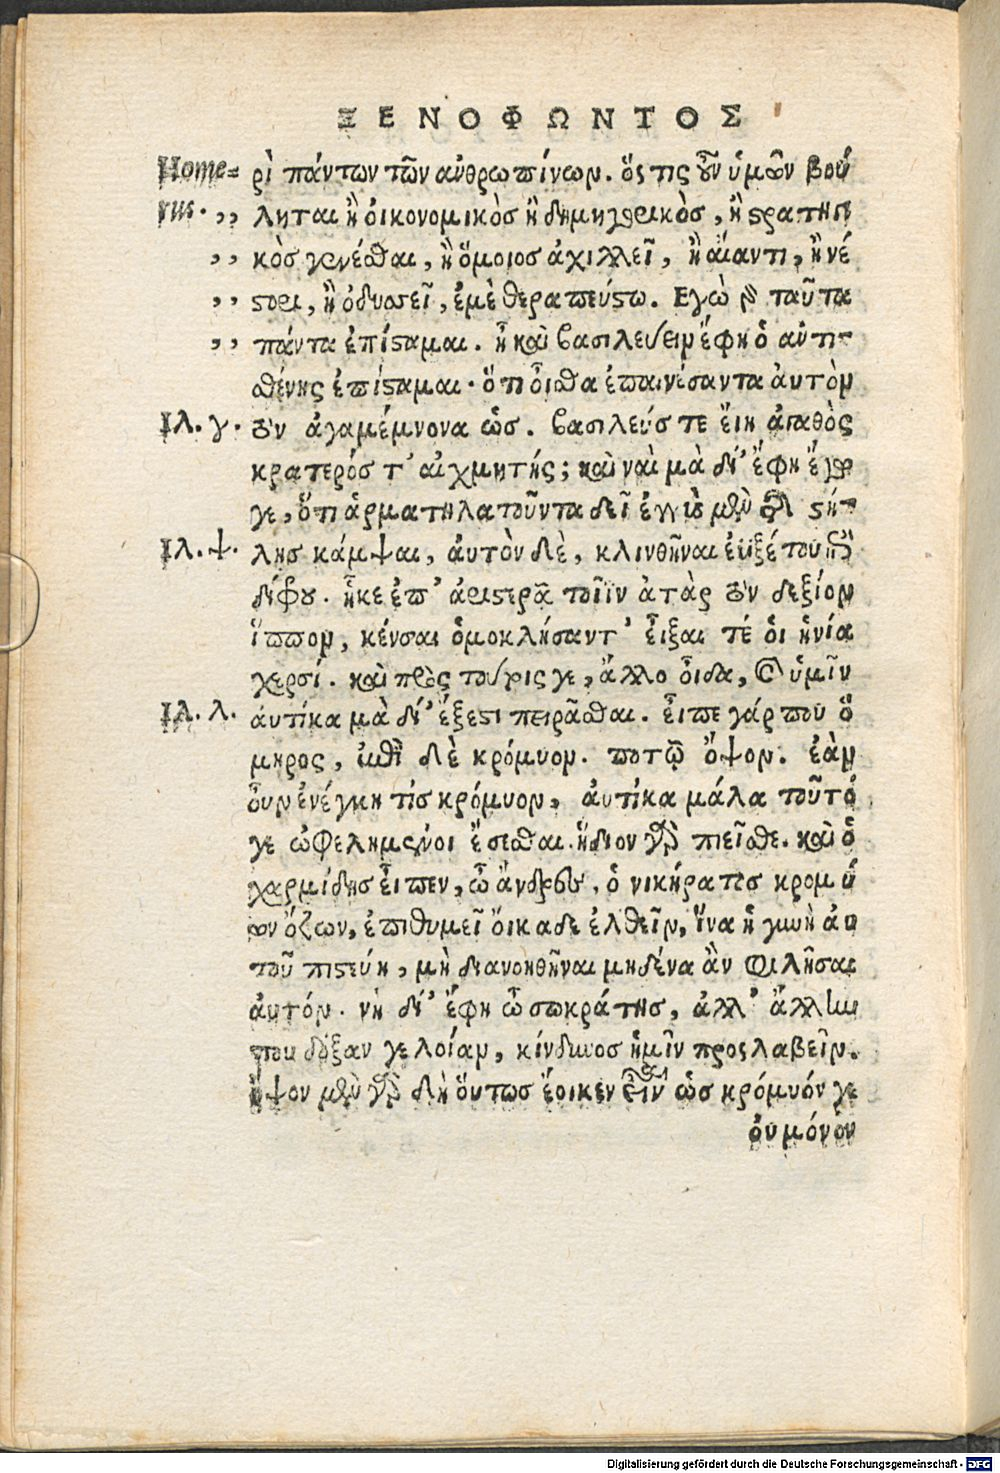 ΞΕΝΟΦΩΝΤΟΣ
Home= ρὶ πάντων τῶν ἀνθρωπίνων. ὅς τις οὖν ὑμῶν βού
rus. ,, ληται ἢ οἰκονομικὸσ ἢ δημηγορικὸς, ἢ στρατηγι
,, κὸσ γενέσθαι, ἢ ὅμοιοσ ἀχιλλεῖ, ἢ αἴαντι, ἢ νέ
,, στορι, ἢ ὀδυσσεῖ, ἐμὲ θεραπεύστω. Εγὼ γὰρ ταῦτα
,, πάντα ἐπίσταμαι. ἦ καὶ βασιλεύειν ἔφη ὁ ἀντι-
σθένης ἐπίσταμαι· ὅτι οἶσθα ἐπαινέσαντα ἀυτὸν
Ιλ. γ. τὸν ἀγαμέμνονα ὡσ. βασιλεύσ τε ἔιη ἀγαθὸς
κρατερόσ τ' αἰχμητής; καὶ ναὶ μὰ δί' ἔφη ἔγω
γε, ὅτι ἁρματηλατοῦντα δεῖ ἐγγὺσ μὲν τῆσ στή-
Ιλ. ψ. λησ κάμψαι, ἀυτὸν δὲ, κλινθῆναι ἐϋξέτου ἐπὶ
δίφρου. ἦκε ἐπ' ἀριστερᾶ τοῖϊν ἀτὰρ τὸν δεξίον
ἵππον, κένσαι ὁμοκλήσαντ' εἶξαι τέ ὁι ἡνία
χερσί. καὶ πρὸς τούτοις γε, ἄλλο οἶδα, καὶ ὑμῖν
Ιλ. λ. ἀυτίκα μὰ δί' ἔξεστι πειρᾶσθαι. εἶπε γάρ που ὅ
μηρος, ἐπὶ δὲ κρόμυον. ποτῷ ὄψον. ἐὰν
οὖν ἐνέγκη τίσ κρόμυον, ἀυτίκα μάλα τοῦτό
γε ὠφελημένοι ἔσεσθαι. ἥδιον γὰρ πιεῖσθε. καὶ ὁ
χαρμίδησ εἶπεν, ὦ ἄνδρες, ὁ νικήρατοσ κρομύ
ων ὄζων, ἐπιθυμεῖ ὄικαδε ἐλθεῖν, ἵνα ἡ γυνὴ ἀυ
τοῦ πιστεύη, μὴ διανοηθῆναι μηδένα ἂν φιλῆσαι
ἀυτόν. νὴ δί' ἔφη ὦ σωκράτησ, ἀλλ' ἄλλην
που δόξαν γελοίαν, κίνδυνοσ ἡμῖν προςλαβεῖν.
ὄψον μὲν γὰρ δὴ ὅυτωσ ἔοικεν εἶναι ὡσ κρόμυόν γε
ὀυ μόνον
Digitalisierung gefördert durch die Deutsche Forschungsgemeinschaft - DFG